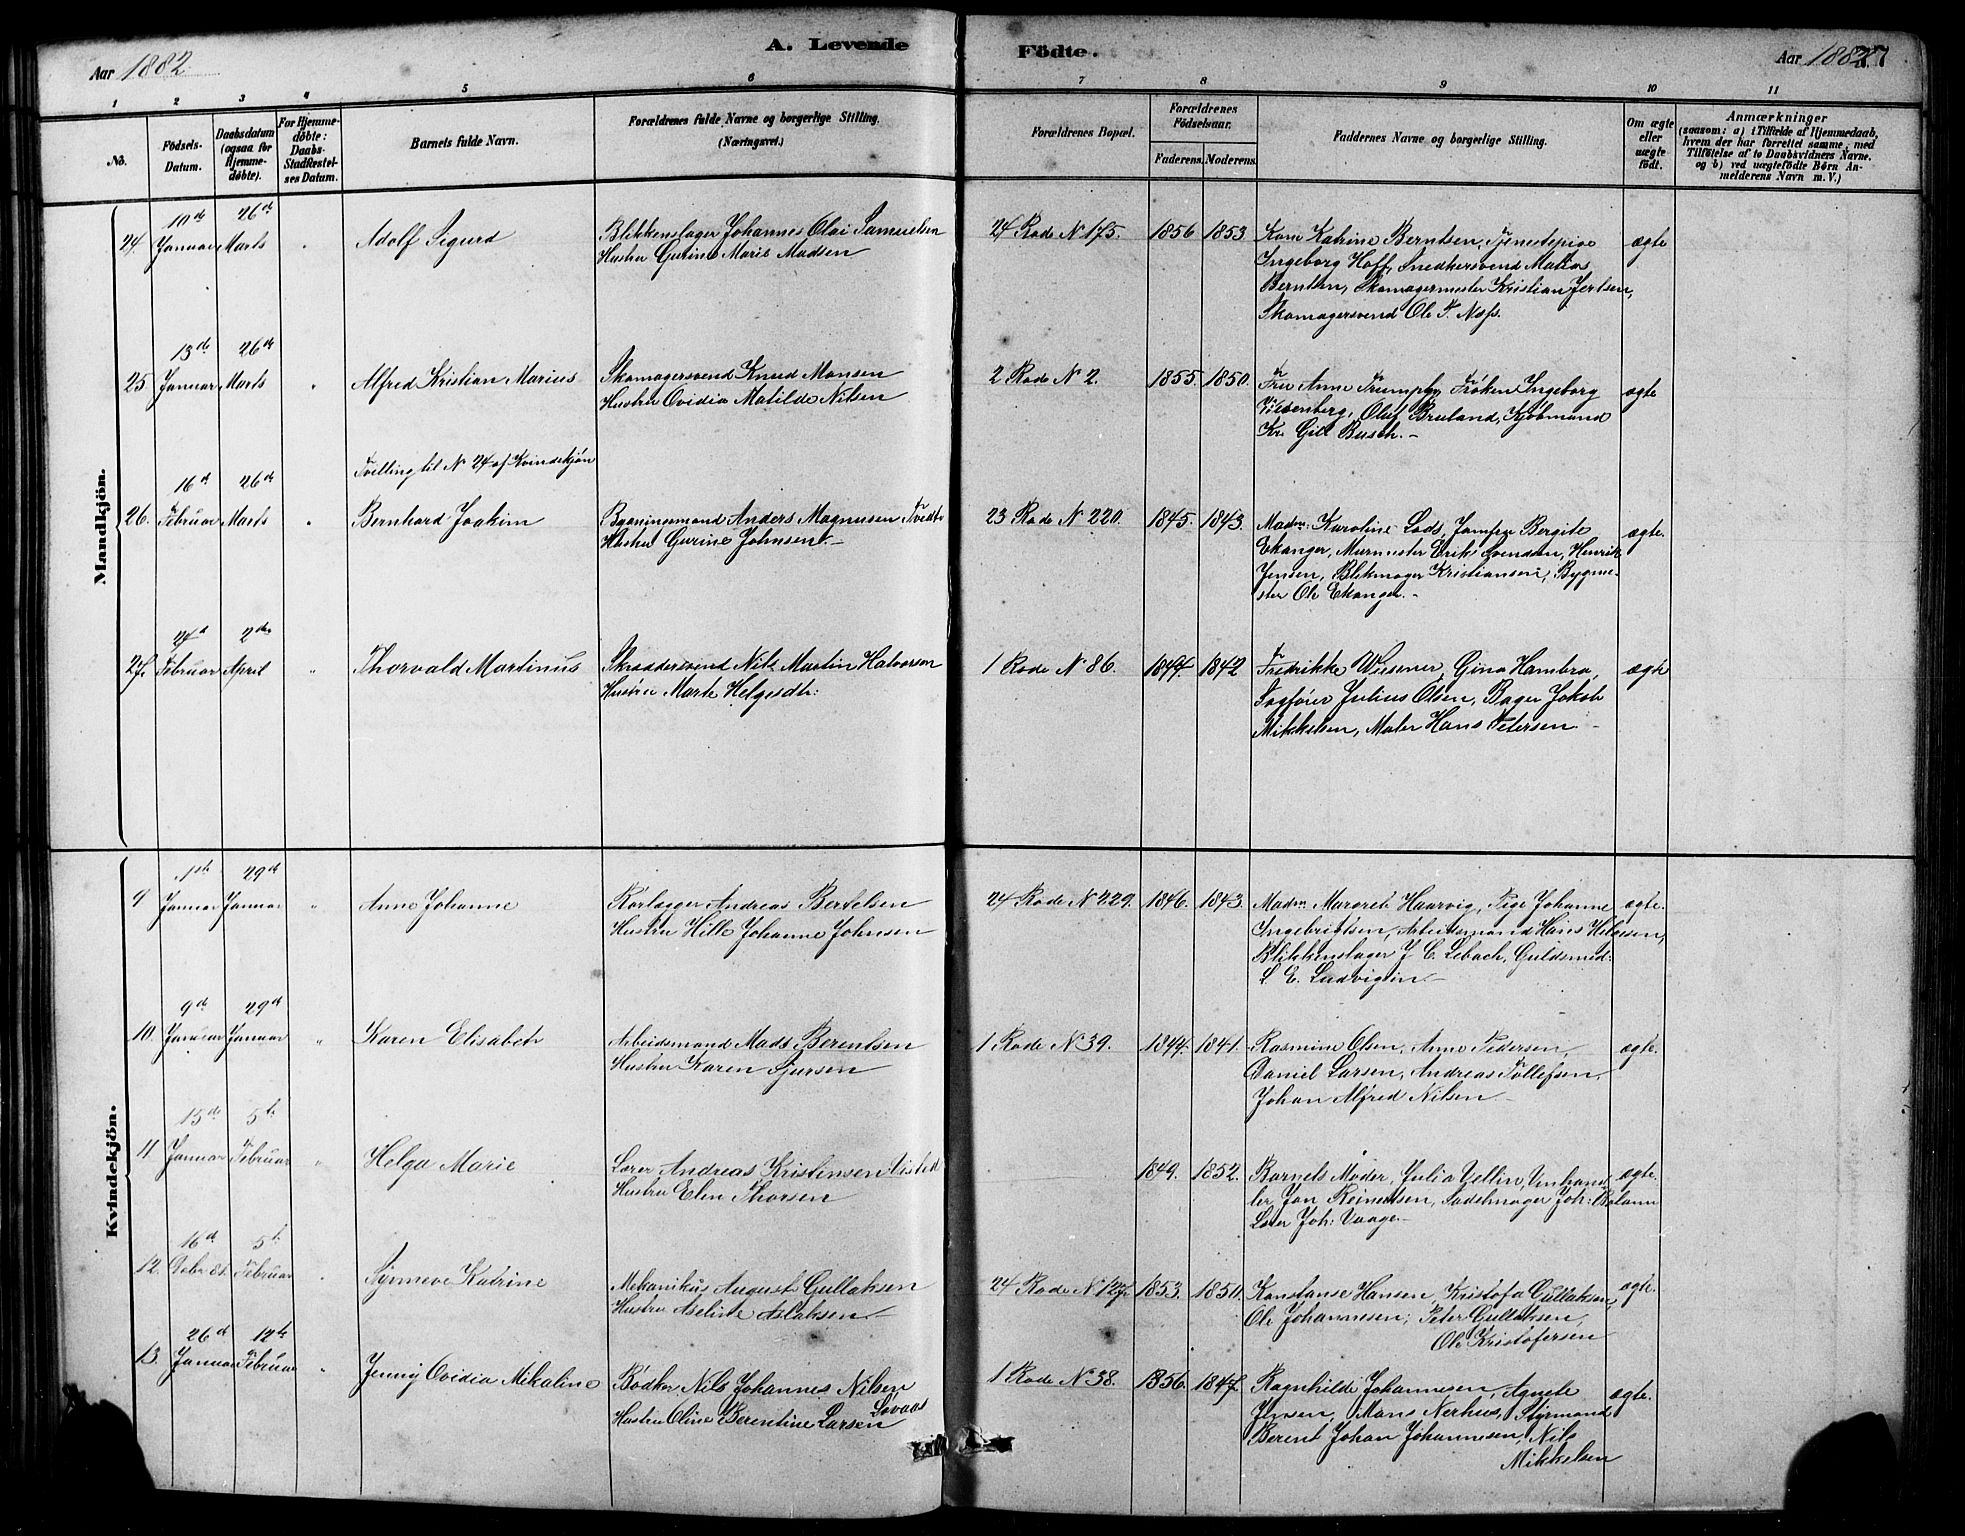 Aar 1882
A. Levende
Födte.
Aar 1882
77
1 2 3 4 5 6 7 8 9 10 11
No.
Födsels-
Datum.
Daabsdatum
(ogsaa for
Hjemme-
döbte).
For Hjemme-
döbte:
Daabs-
Stadfæstel-
ses Datum.
Barnets fulde Navn.
Forældrenes fulde Navne og borgerlige Stilling.
(Næringsvei.)
Forældrenes Bopæl.
Forældrenes
Födselsaar.
Faderens. Moderens.
Faddernes Navne og borgerlige Stilling.
Om ægte
eller
uægte
födt.
Anmærkninger
(saasom: a) i Tilfælde af Hjemmedaab,
hvem der har forrettet samme, med
Tilföielse af to Daabsvidners Navne.
og b) ved uægtefödte Börn An-
melderens Navn m. V.)
Mandkjön.
10de 26de
24. Januar Marts " Adolf Sigurd Blikkenslager Johannes Olai Samuelsen 24 Rode N 175. 1856 1853 Kone Katrine Berntsen, Tjenestepige ægte
Hustru Gurine Marie Madsen Ingeborg Hoff, Snedkersvend Matias
Berntsen, Skomagermester Kristian Jertsen,
Skomagersvend Ole T. Næss.
13de 26de
25 Januar Marts " Alfred Kristian Marius Skomagersvend Knud Monsen 2 Rode N 2. 1855. 1850. Fru Anne Trumpy, Frøken Ingeborg ægte
Hustru Ovidia Matilde Nilsen Oluf Bruland, Kjøbmand
Kr. Gill Busch.
Tvilling til N 24 af Kvindekjøn
16d 26de
26. Februar Marts " Bernhard Joakim Bygningsmand Anders Magnusen Tvedt 23 Rode N 220. 1845. 1843. Madm: Karoline Lods, Jomfru Bergite ægte.
Hustru Gurine Johnsen Ekanger, Murmester Erik Svendsen, Henrik
Jensen, Blikmager Kristiansen, Bygme-
ster Ole Ekanger.
24d 2den
27. Februar April " Thorvald Martinus Skræddersvend Nils Martin Halvorsen 1 Rode N 86. 1844. 1842 Fredrikke Wiesener, Gina Hambro, ægte
Hustru Marte Helgesdtr: Sagfører Julius Olsen, Bager Jakob
Mikkelsen, Maler Hans Petersen
Kvindekjön.
1ste 29d
9 Januar Januar " Anne Johanne Rørlægger Andreas Bertelsen 24 Rode N 229. 1846. 1843. Madm Margret Haarvig, Pige Johanne ægte.
Hustru Hille Johanne Johnsen Ingebrigtsen, Arbeidsmand Hans Helgesen,
Blikkenslager J C. Lebach, Guldsmed:
L E. Ludvigsen
9de 29d
10. Januar Januar " Karen Elisabeth Arbeidsmand Mads Berentsen 1 Rode N 39. 1844. 1841. Rasmine Olsen, Anne Pedersen, ægte.
Hustru Karen Sjursen Daniel Larsen, Andreas Tollefsen,
Johan Alfred Nilsen
15de 5te
11 Januar Februar " Helga Marie Lærer Andreas Kristensen Listed 1849. 1852. Barnets Moder, Julia Vellin, Vinhand- ægte.
Hustru Elen Thorsen ler Jan Reinertsen, Sadelmager Joh: Bolann
Lærer Joh: Vaage
16d 5te
12. Februar " Synneve Katrine Mekanikus August Gullaksen 24 Rode N 127. 1853. 1850. Konstanse Hansen, Kristofa Gullaksen, ægte.
Hustru Aseline Aslaksen Ole Johannesen, Peter Gullaksen,
Ole Kristofersen
26d 12te
13. Januar Februar " Jenny Ovidia Mikaline Bødker Nils Johannes Nilsen 1 Rode N 38. 1856. 1847. Ragnhilde Johannesen, Agnete ægte.
Løvaas
Hustru Oline Berentine Larsen Jensen, Mons Nerhus, Styrmand
Berent Johan Johannesen, Nils
Mikkelsen